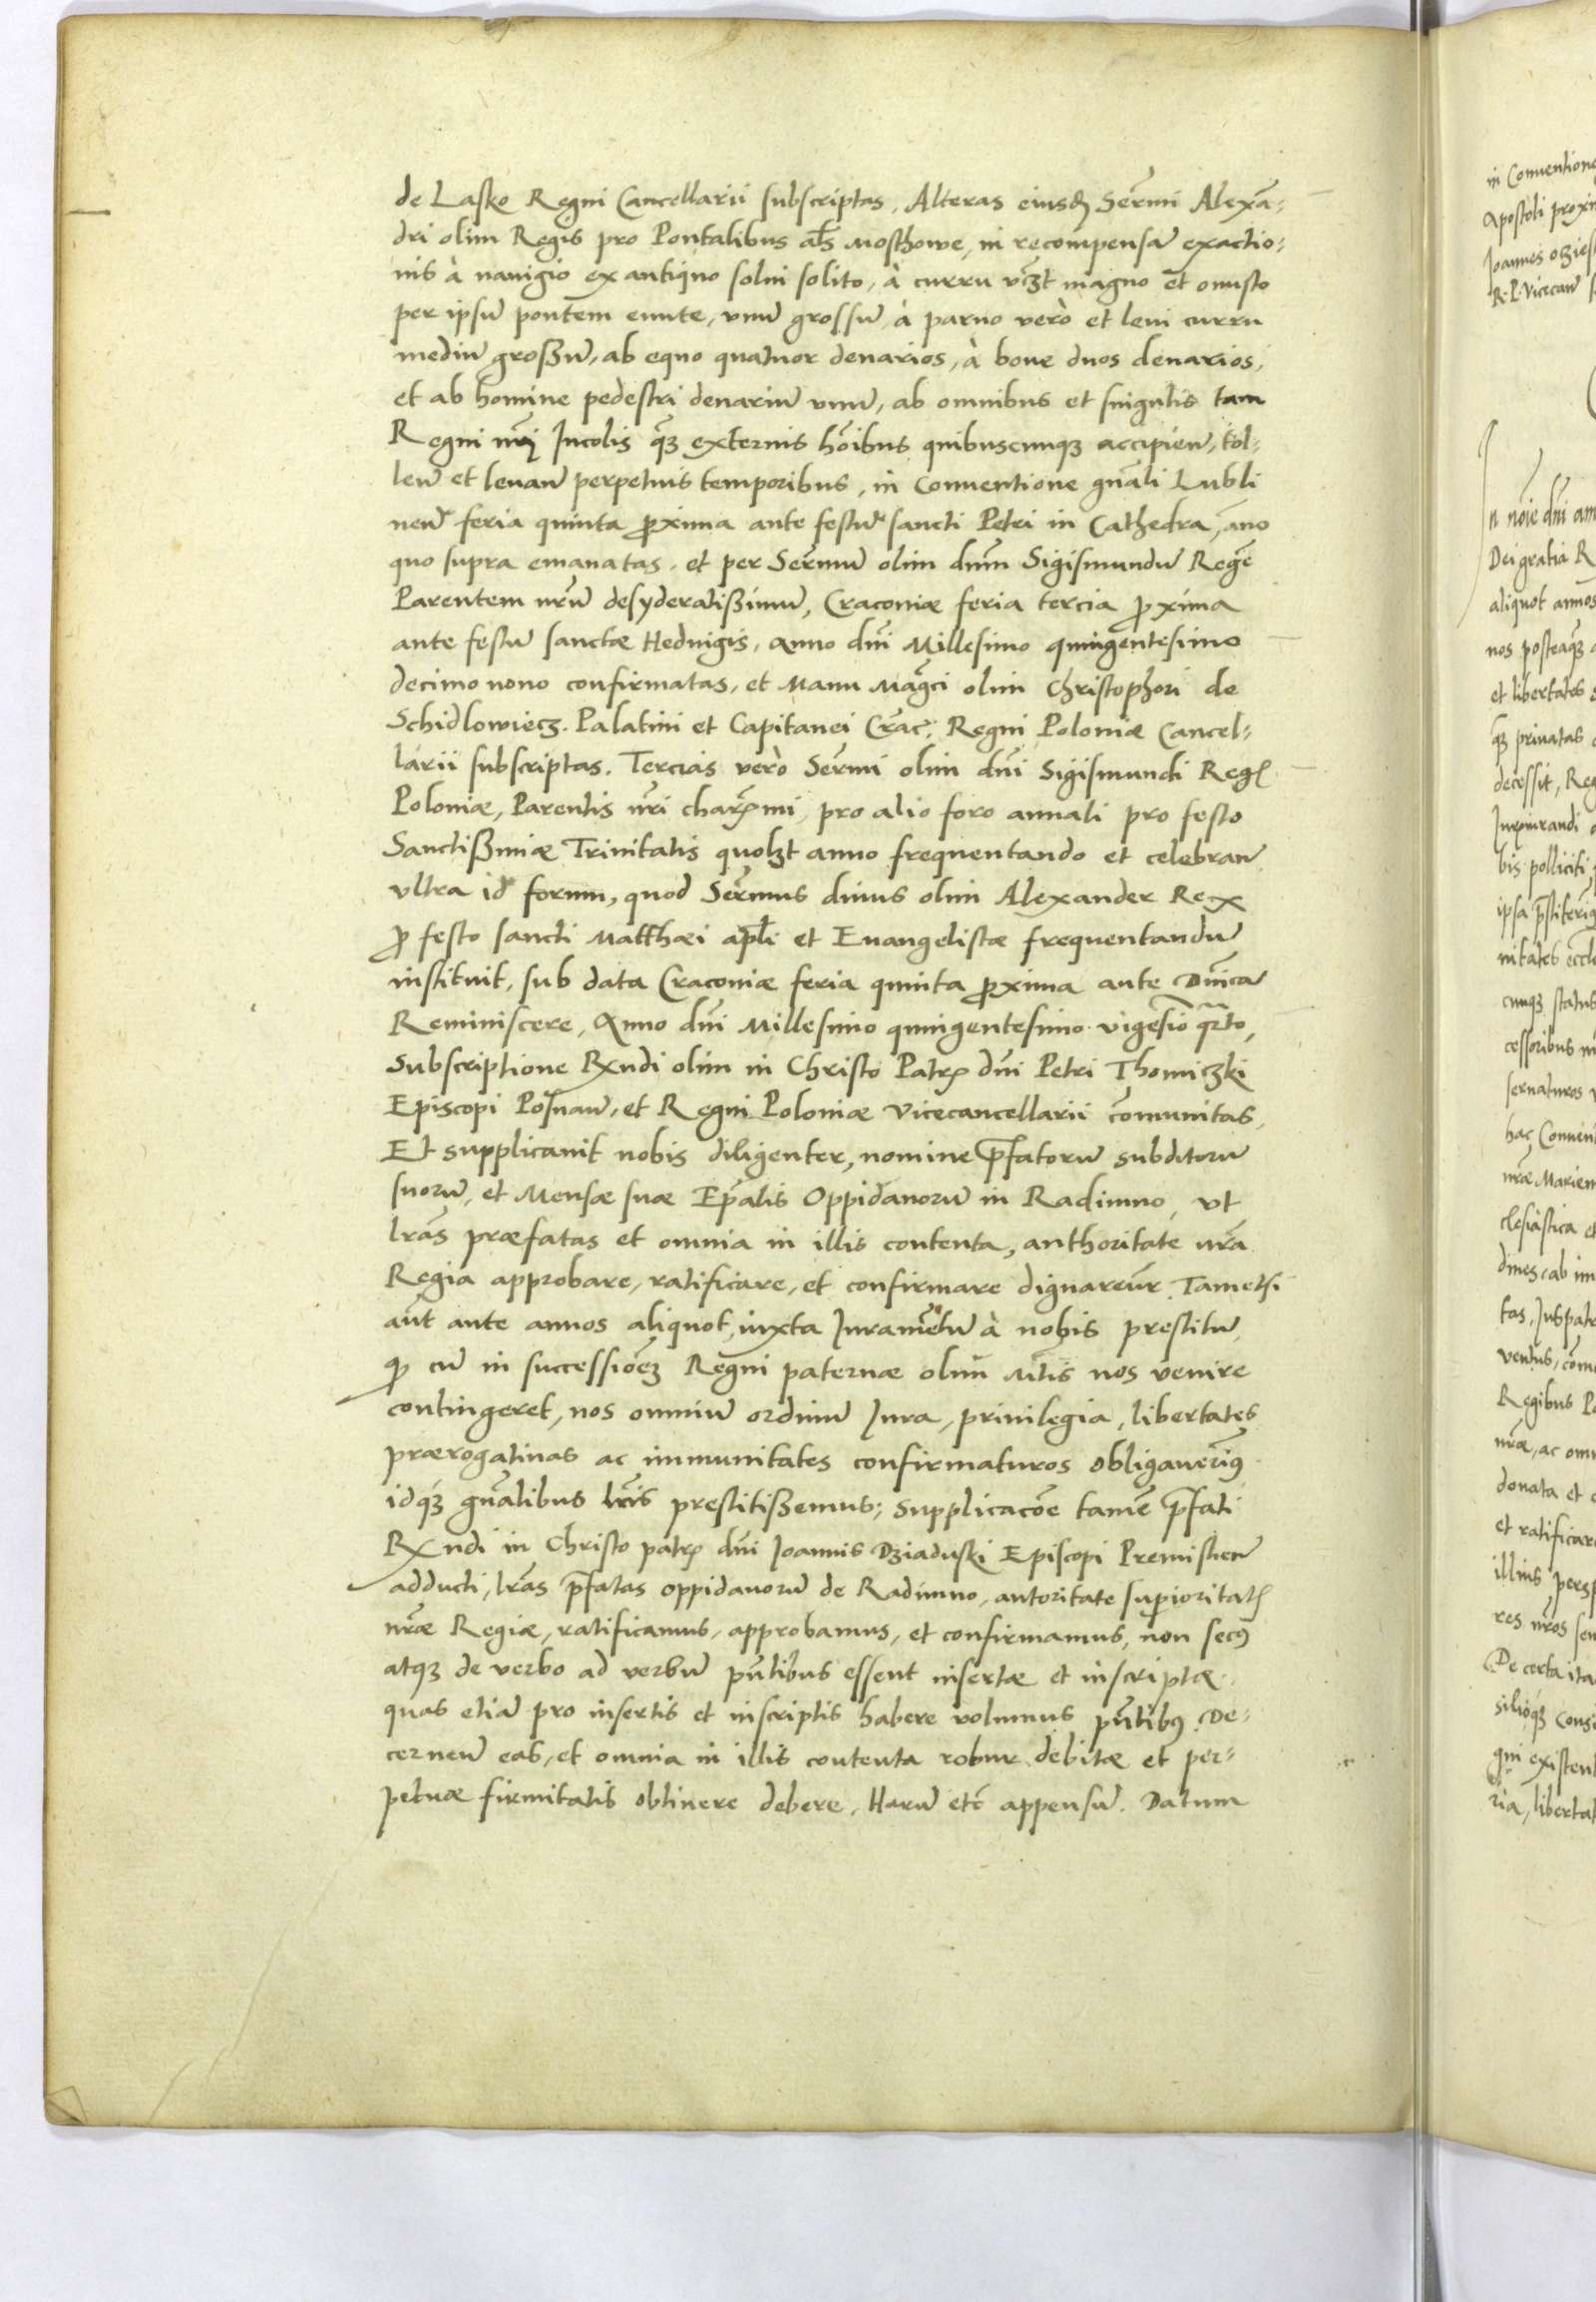 de Lasko Regni Cancellarii subscriptas, Alteras eiusd Sermi Alexā-
dri olim Regis pro Pontalibus als Mosthowe, in recompensam̄ exactio-
nis à nauigio ex antiquo solui solito, à curru vczt magno et onusto
per ipsum̄ pontem eunte, vnum̄ grossum̄, à paruo verò et leui curru
mediū großū, ab equo quatuor denarios, à boue duos denarios,
et ab homine pedestri denariū vnū, ab omnibus et singulis tam
Regni nri Incolis qȝ externis hoibus quibuscunqȝ accipien̄, tol-
len̄ et leuan̄ perpetuis temporibus, in Conuentione gnāli Lubli
nen̄ feria quinta proxima ante festū sancti Petri in Cathedra, āno
quo supra emanatas, et per Sermū olim dnm Sigismundū Regē
Parentem nrūm desyderatißimū, Cracouiæ feria tercia proxima
ante festū sanctæ Heduigis, Anno dni Millesimo quingentesimo
decimo nono confirmatas, et Manu Magci olim Christophori de
Schidlowiecz. Palatini et Capitanei Crac: Regni Poloniæ Cancel-
larii subscriptas. Tercias verò Sermi olim dni Sigismundi Regꝭ
Poloniæ, Parentis nri charmi, pro alio foro annali pro festo
Sanctißimæ Trinitatis quolzt anno frequentando et celebran̄
vltra id forum, quod Sermus diuus olim Alexander Rex
ꝓ festo sancti Matthæi apli et Euangelistæ frequentandū
instituit, sub data Cracouiæ feria quinta proxima ante Dnicā
Reminiscere, Anno dni Millesimo quingentesimo vigesio qrto,
Subscriptione Rxndi olim in Christo Patrꝭ dni Petri Thomiczki
Episcopi Posnan̄, et Regni Poloniæ Vicecancellarii cōmunitas,
Et supplicauit nobis diligenter, nomine pfatorū subditorū
suorū, et Mensæ suæ Epalis Oppidanorū in Radimno, vt
lras præfatas et omnia in illis contenta, authoritate nra
Regia approbare, ratificare, et confirmare dignaremur. Tametsi
aut ante annos aliquot, iuxta Iuramētū à nobis prestitū,
ꝙ cū in successioēȝ Regni paternæ olim Mtis nos venire
contingeret, nos omniū ordinū Iura, priuilegia, libertates
prærogatiuas ac immunitates confirmaturos obligauerimꝰ
idqȝ gnālibus lris prestitißemus; Supplicacōe tamē pfati
Rxndi in Christo patrꝭ dni Ioannis Dziaduski Episcopi Premislien̄
adducti, lras pfatas oppidanorū de Radimno, autoritate supioritatꝭ
nræ Regiæ, ratificamus, approbamus, et confirmamus, non secꝰ
atqȝ de verbo ad verbū pntibus essent insertæ et inscriptæ.
quas etiā pro insertis et inscriptis habere volumus pntibꝰ. De-
cernen̄ eas, et omnia in illis contenta robur debitæ et per-
petuæ firmitatis obtinere debere. Harū etc appensū. Datum
in Conuentione
Apostoli proxi
R. P. Vicecan̄
n noie dni am
Dei gratia R
aliquot annos
nos posteaqȝ
et libertates
qȝ priuatas
decessit, Reg
Iureiurandi
bis polliciti
nitates eccle
cunqȝ status
cessoribus n
seruaturos
hac Conuen
clesiastica et
dines, ab im
tas, Iuspatr
uentus, com
Regibus Po
nræ, ac om
donata et
et ratificar
illius persp
res nros sen
De certa ita
silioqȝ Cons
qui existen
ria, libertat